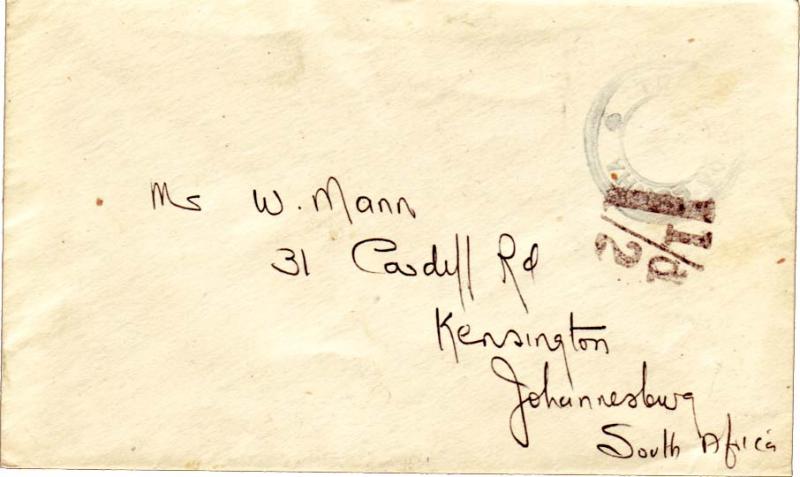 Mr W. Mann
31 Cardiff Rd
Kensington
Johannesburg
South Africa